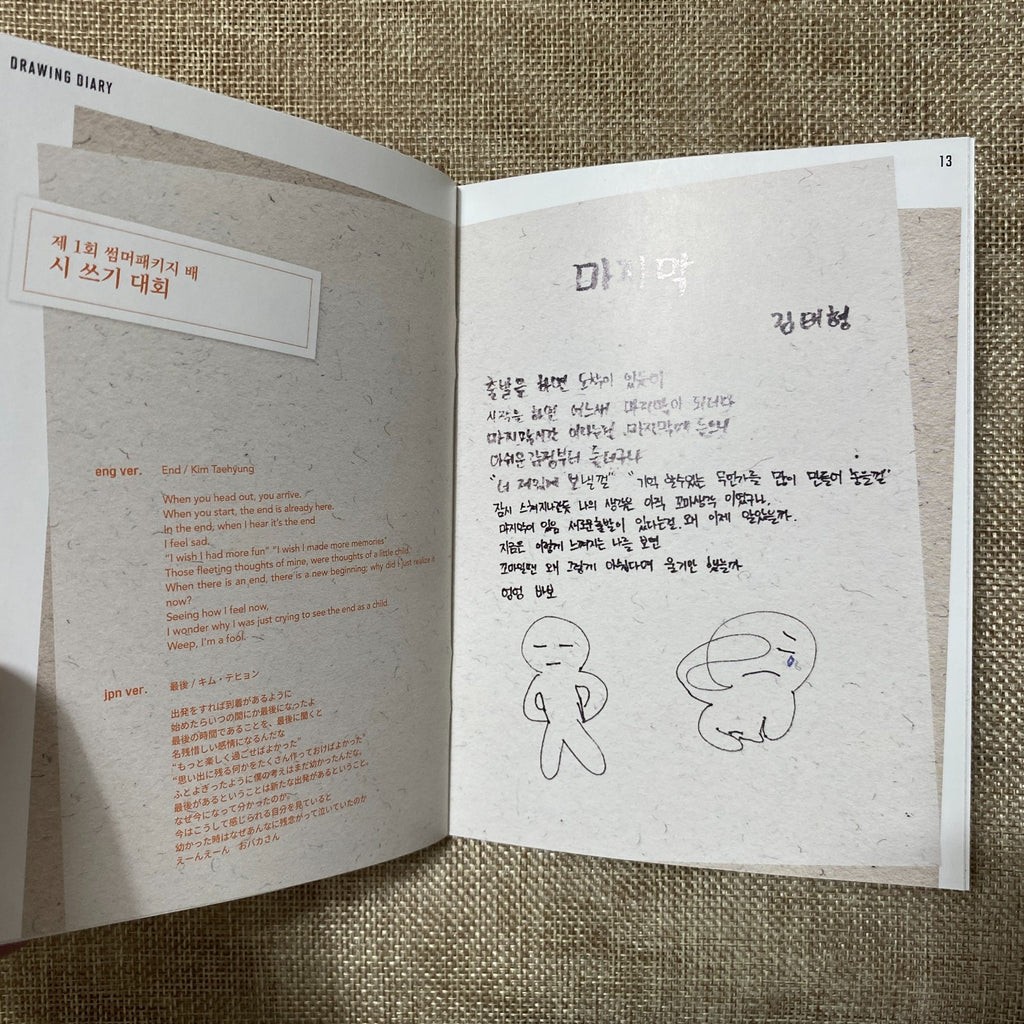 DRAWING DIARY
제 1회 썸머패키지 배
시 쓰기 대회
eng ver.
End / Kim Taehyung
When you head out, you arrive.
When you start, the end is already here.
In the end, when I hear it's the end
I feel sad.
"I wish I had more fun" "I wish I made more memories"
Those fleeting thoughts of mine, were thoughts of a little child.
When there is an end, there is a new beginning; why did I just realize it
now?
Seeing how I feel now,
I wonder why I was just crying to see the end as a child.
Weep, I'm a fool.
jpn ver.
最後 / キム・テヒョン
出発をすれば到着があるように
始めたらいつの間にか最後になったよ
最後の時間であることを、最後に聞くと
名残惜しい感情になるんだな
"もっと楽しく過ごせばよかった"
"思い出に残る何かをたくさん作っておけばよかった"
ふとよぎったように僕の考えはまだ幼かったんだな。
最後があるということは新たな出発があるということ。
なぜ今になって分かったのか。
今はこうして感じられる自分を見ていると
幼かった時はなぜあんなに残念がって泣いていたのか
えーんえーん おバカさん
13
마지막
김태형
출발을 하면 도착이 있듯이
시작을 하면 어느새 마지막이 되더라
마지막시간 이라는걸 마지막에 들으니
아쉬운 감정부터 들더구나
"더 재밌게 보낼껄" "기억 할수있는 무언가를 많이 만들어 놓을껄"
잠시 스쳐지나갔듯 나의 생각은 아직 꼬마생각 이였구나.
마지막이 있음 새로운출발이 있다는걸. 왜 이제 알았을까.
지금은 이렇게 느껴지는 나를 보면
꼬마일땐 왜 그렇게 아쉽다며 울기만 했을까
엉엉 바보